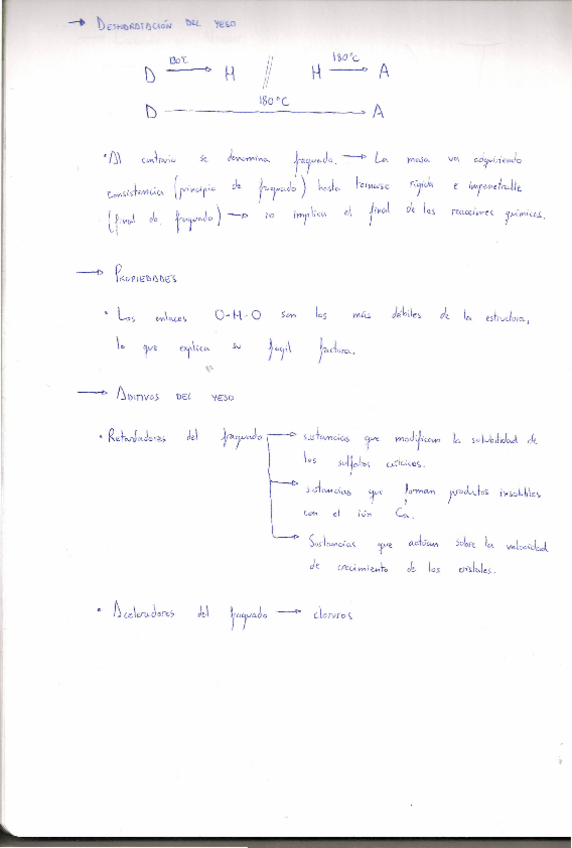 → DESHIDRATACIÓN DEL YESO
D 130°C → H // H 180°C → A
D 180°C → A
• Al contrario se denomina fraguado. → La masa va adquiriendo
consistencia (principio de fraguado) hasta tornarse rígida e impenetrable
(final de fraguado) → no implica el final de las reacciones químicas.
→ PROPIEDADES
• Los enlaces O-H-O son los más débiles de la estructura,
lo que explica su fagil fractura.
→ ADITIVOS DEL YESO
• Retardadores del fraguado → sustancias que modifican la solubilidad de
los sulfatos cálcicos.
→ sustancias que forman productos insolubles
con el ión Ca.
→ Sustancias que actúan sobre la velocidad
de crecimiento de los cristales.
• Aceleradores del fraguado → cloruros